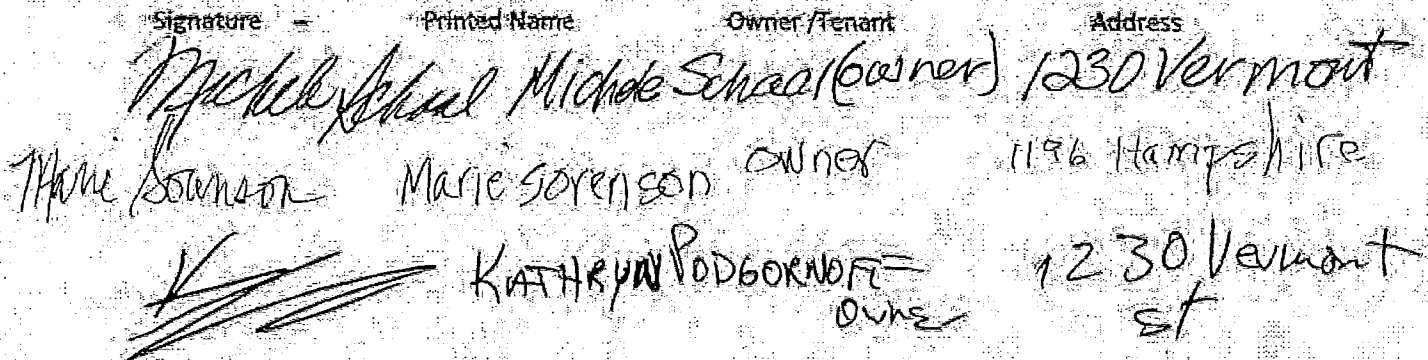 Signature - Printed Name Owner/Tenant Address
Michele Schaal Michele Schaal (owner) 1230 Vermont
Marie Sorenson Marie Sorenson owner 1196 Hampshire
KATHRYN PODGORNOFF 1230 Vermont
Owner st